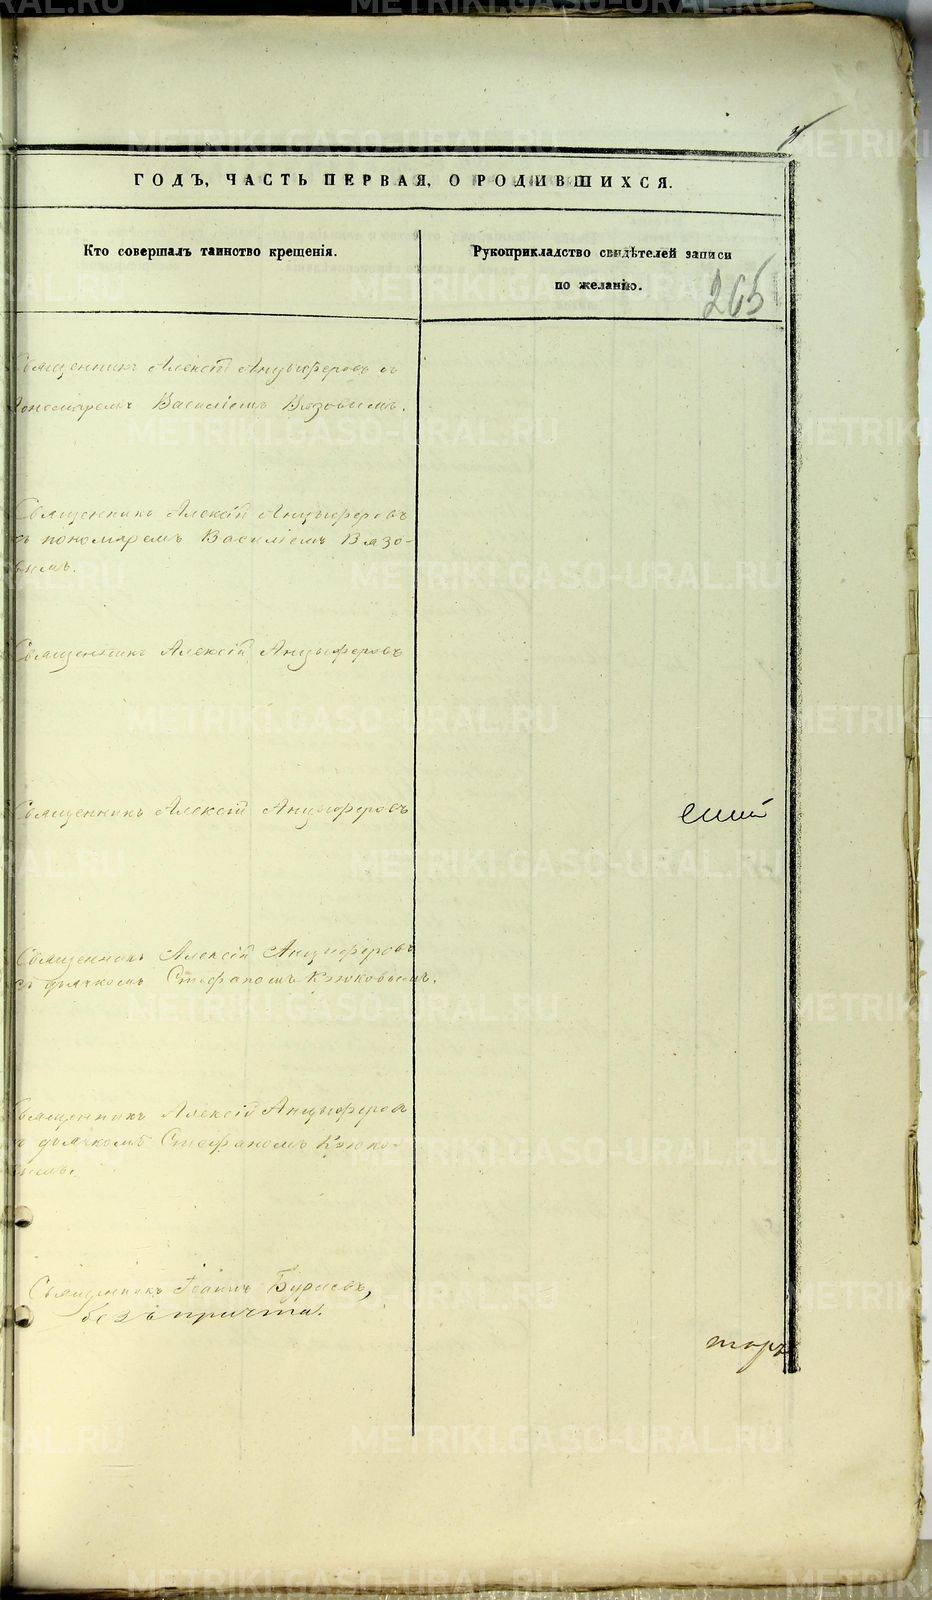 ГОДЪ, ЧАСТЬ ПЕРВАЯ, О РОДИВШИХСЯ.
Кто совершалъ таинство крещенія.
Рукоприкладство свидѣтелей записи
по желанію.
265
Священникъ Алексій Анцыферовъ съ
пономаремъ Василіемъ Вязовымъ.
Священникъ Алексій Анцыферовъ
съ пономаремъ Василіемъ Вязо-
вымъ.
Священникъ Алексій Анцыферовъ
Священникъ Алексій Анцыферовъ
Священникъ Алексій Анцыферовъ
съ дьячкомъ Стефаномъ Крюковымъ.
Священникъ Алексій Анцыферовъ
съ дьячкомъ Стефаномъ Крюко-
вымъ.
Священникъ Іоаннъ Бурасовъ,
безъ причта.
METRIKI.GASO-URAL.RU